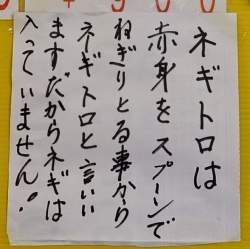 ネギトロは
赤身をスプーンで
ねぎりとる事から
ネギトロと言い
ますだからネギは
入っていません!